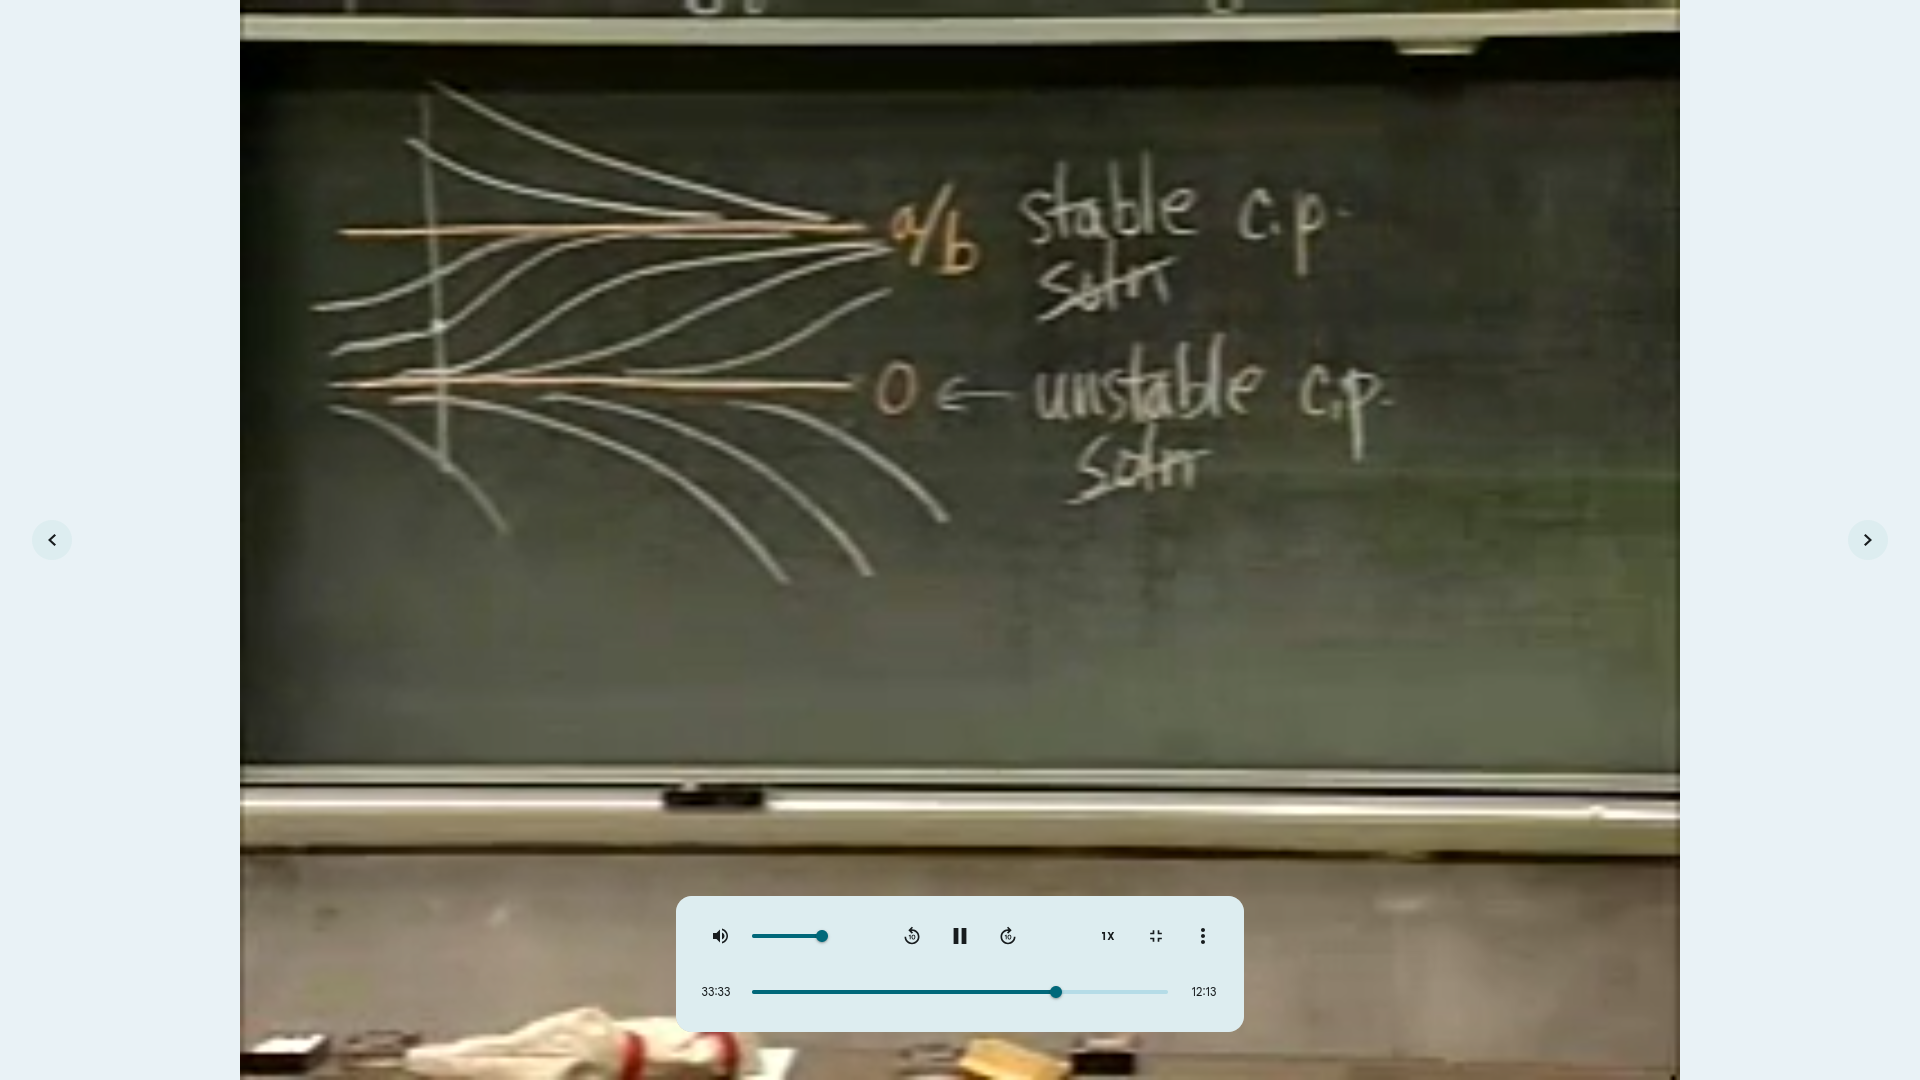 a/b stable c.p.
soln
0 ← unstable c.p.
soln
1X
33:33
12:13